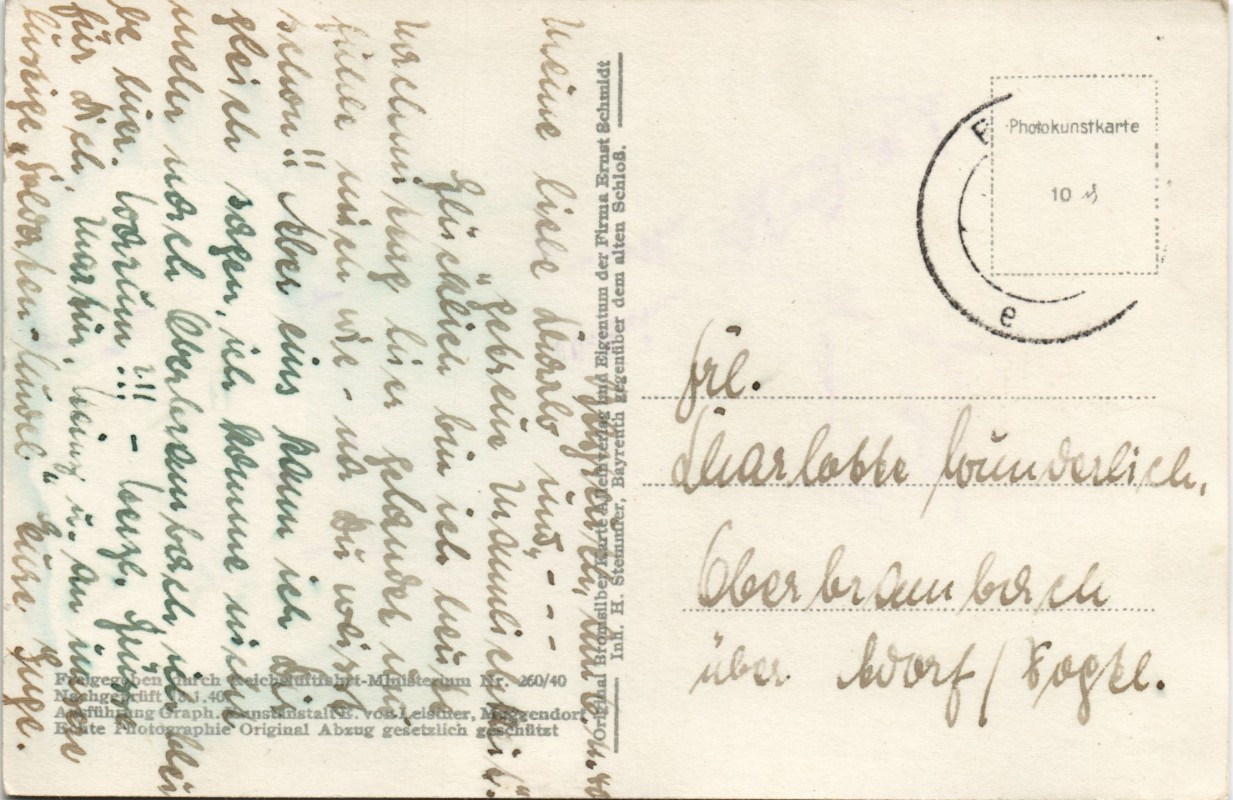 Meine liebe und, - - -
„getreue
Glücklich bin ich heute
nachmittag hier gelandet und
fühle mich wie - na du weißt
schon!! Aber eins kann ich dir
gleich sagen, ich komme nicht
mehr nach Oberbrambach, ich blei
be hier. Warum!!! - Herzl. Grüße
für dich, Martin, Heinz u. an
lustige „Soldaten- Eure Inge.
Freigegeben durch Reichsluftfahrt-Ministerium Nr. 260/40
Nachgeprüft 18.1.40
Ausführung Graph. Kunstanstalt E. von Leistner, Muggendorf
Echte Photographie Original Abzug gesetzlich geschützt
Original Bromsilber Karte Alleinverlag und Eigentum der Firma Ernst Schmidt
Inh. H. Stemmler, Bayreuth gegenüber dem alten Schloß.
Photokunstkarte
10
Frl.
Charlotte Wunderlich,
Oberbrambach
über Adorf / Vogtl.